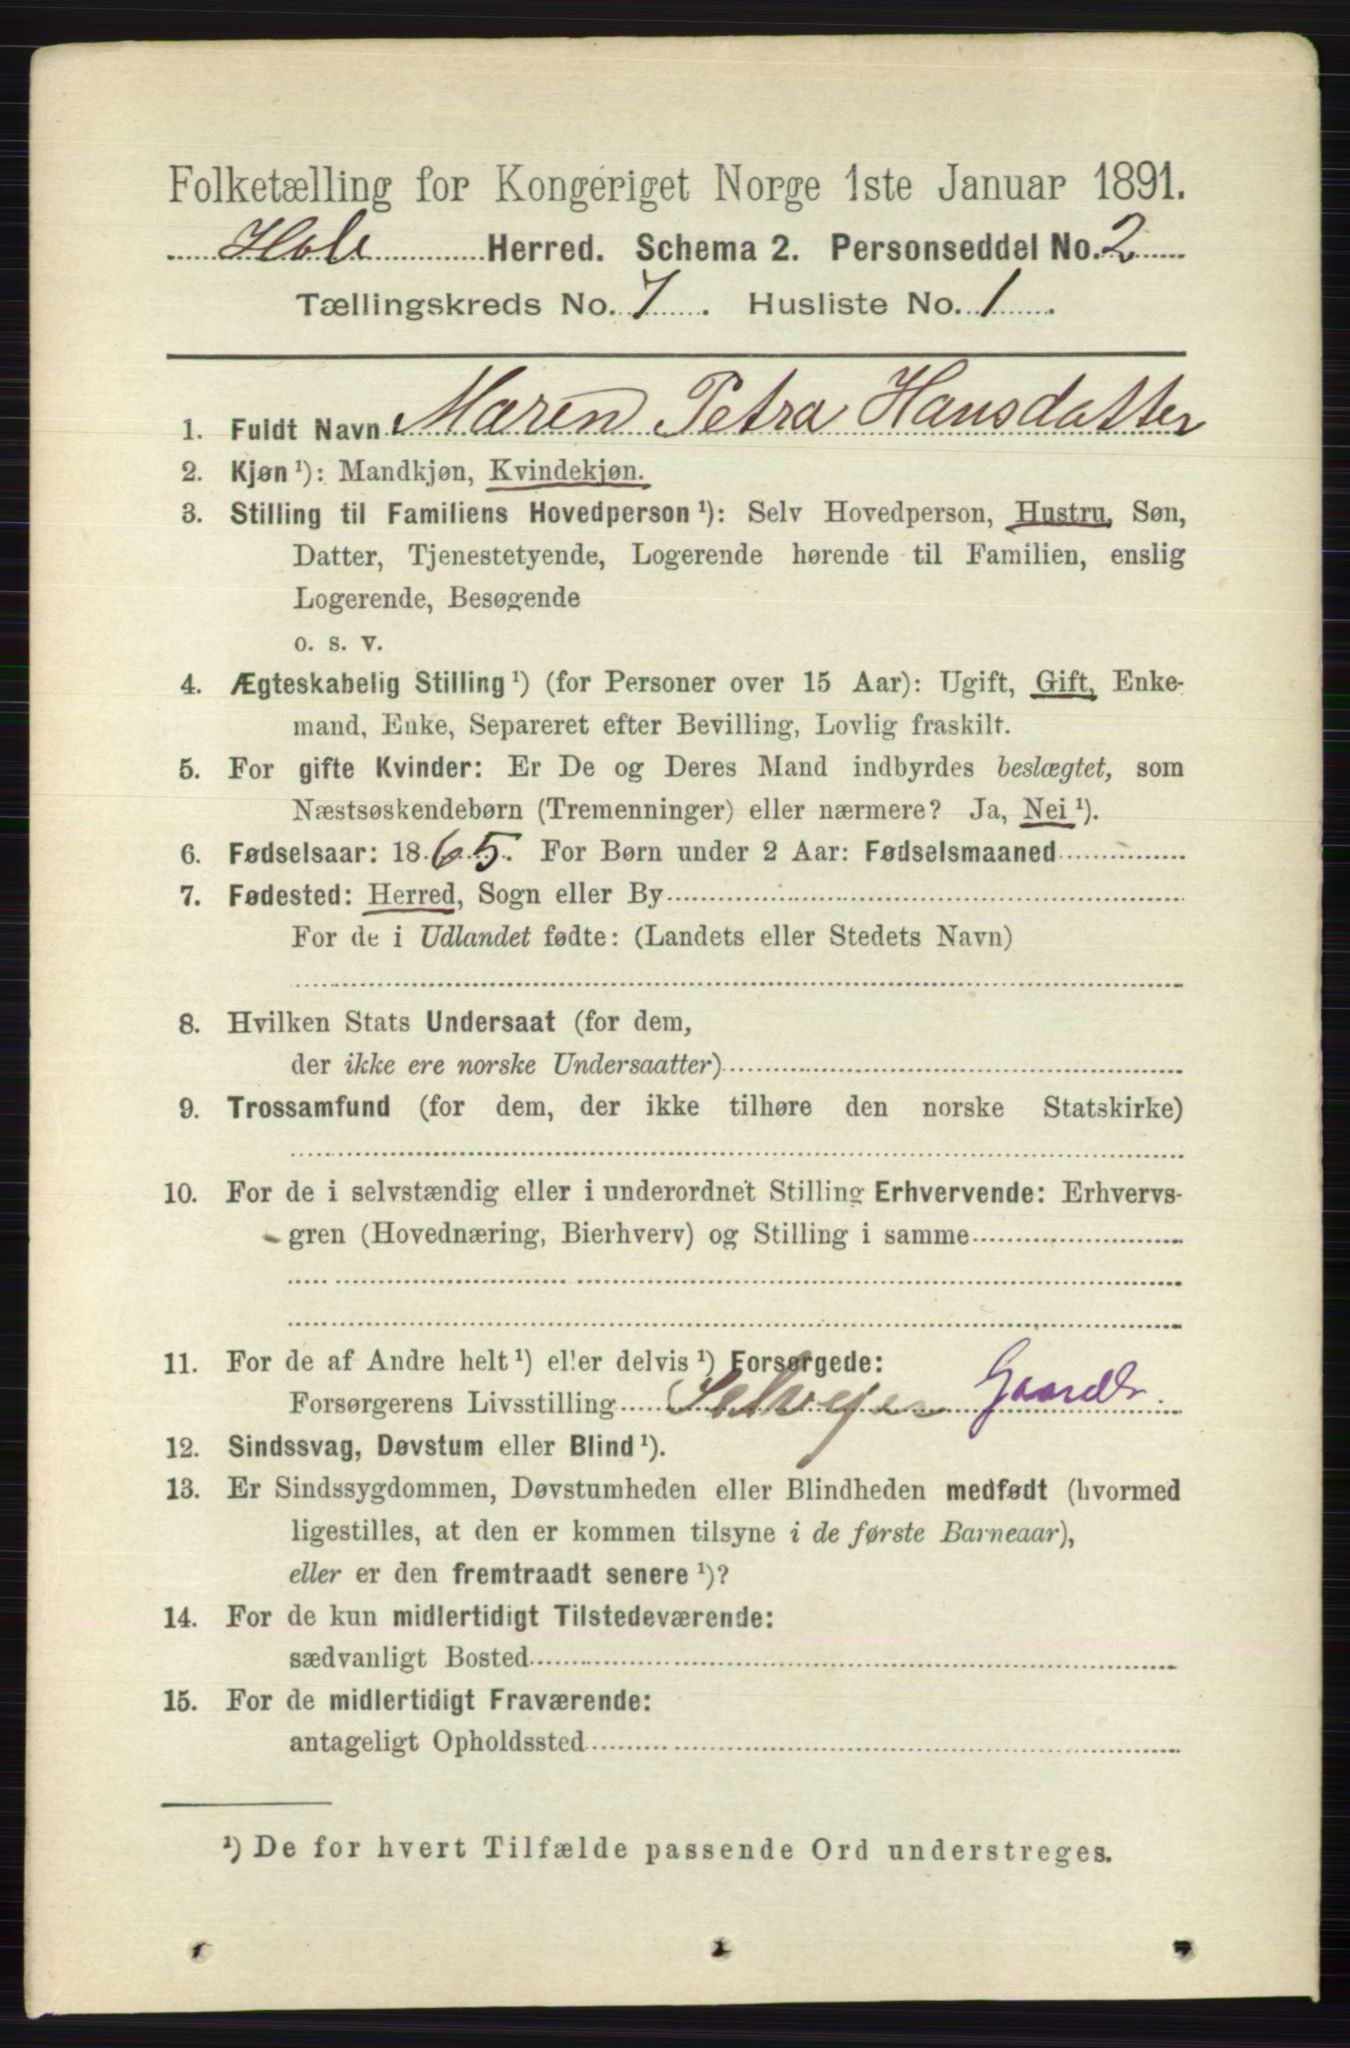 Folketælling for Kongeriget Norge 1ste Januar 1891.
Hole Herred. Schema 2. Personseddel No. 2
Tællingskreds No. 7. Husliste No. 1.
1. Fuldt Navn Maren Petra Hansdatter
2. Kjøn ¹): Mandkjøn, Kvindekjøn.
3. Stilling til Familiens Hovedperson ¹): Selv Hovedperson, Hustru, Søn,
Datter, Tjenestetyende, Logerende hørende til Familien, enslig
Logerende, Besøgende
o. s. v.
4. Ægteskabelig Stilling ¹) (for Personer over 15 Aar): Ugift, Gift, Enke-
mand, Enke, Separeret efter Bevilling, Lovlig fraskilt.
5. For gifte Kvinder: Er De og Deres Mand indbyrdes beslægtet, som
Næstsøskendebørn (Tremenninger) eller nærmere? Ja, Nei ¹).
6. Fødselsaar: 1865. For Børn under 2 Aar: Fødselsmaaned
7. Fødested: Herred, Sogn eller By
For de i Udlandet fødte: (Landets eller Stedets Navn)
8. Hvilken Stats Undersaat (for dem,
der ikke ere norske Undersaatter)
9. Trossamfund (for dem, der ikke tilhøre den norske Statskirke)
10. For de i selvstændig eller i underordnet Stilling Erhvervende: Erhvervs-
gren (Hovednæring, Bierhverv) og Stilling i samme
11. For de af Andre helt ¹) eller delvis ¹) Forsørgede:
Forsørgerens Livsstilling Selveier Gaardb.
12. Sindssvag, Døvstum eller Blind ¹).
13. Er Sindssygdommen, Døvstumheden eller Blindheden medfødt (hvormed
ligestilles, at den er kommen tilsyne i de første Barneaar),
eller er den fremtraadt senere ¹)?
14. For de kun midlertidigt Tilstedeværende:
sædvanligt Bosted
15. For de midlertidigt Fraværende:
antageligt Opholdssted
¹) De for hvert Tilfælde passende Ord understreges.